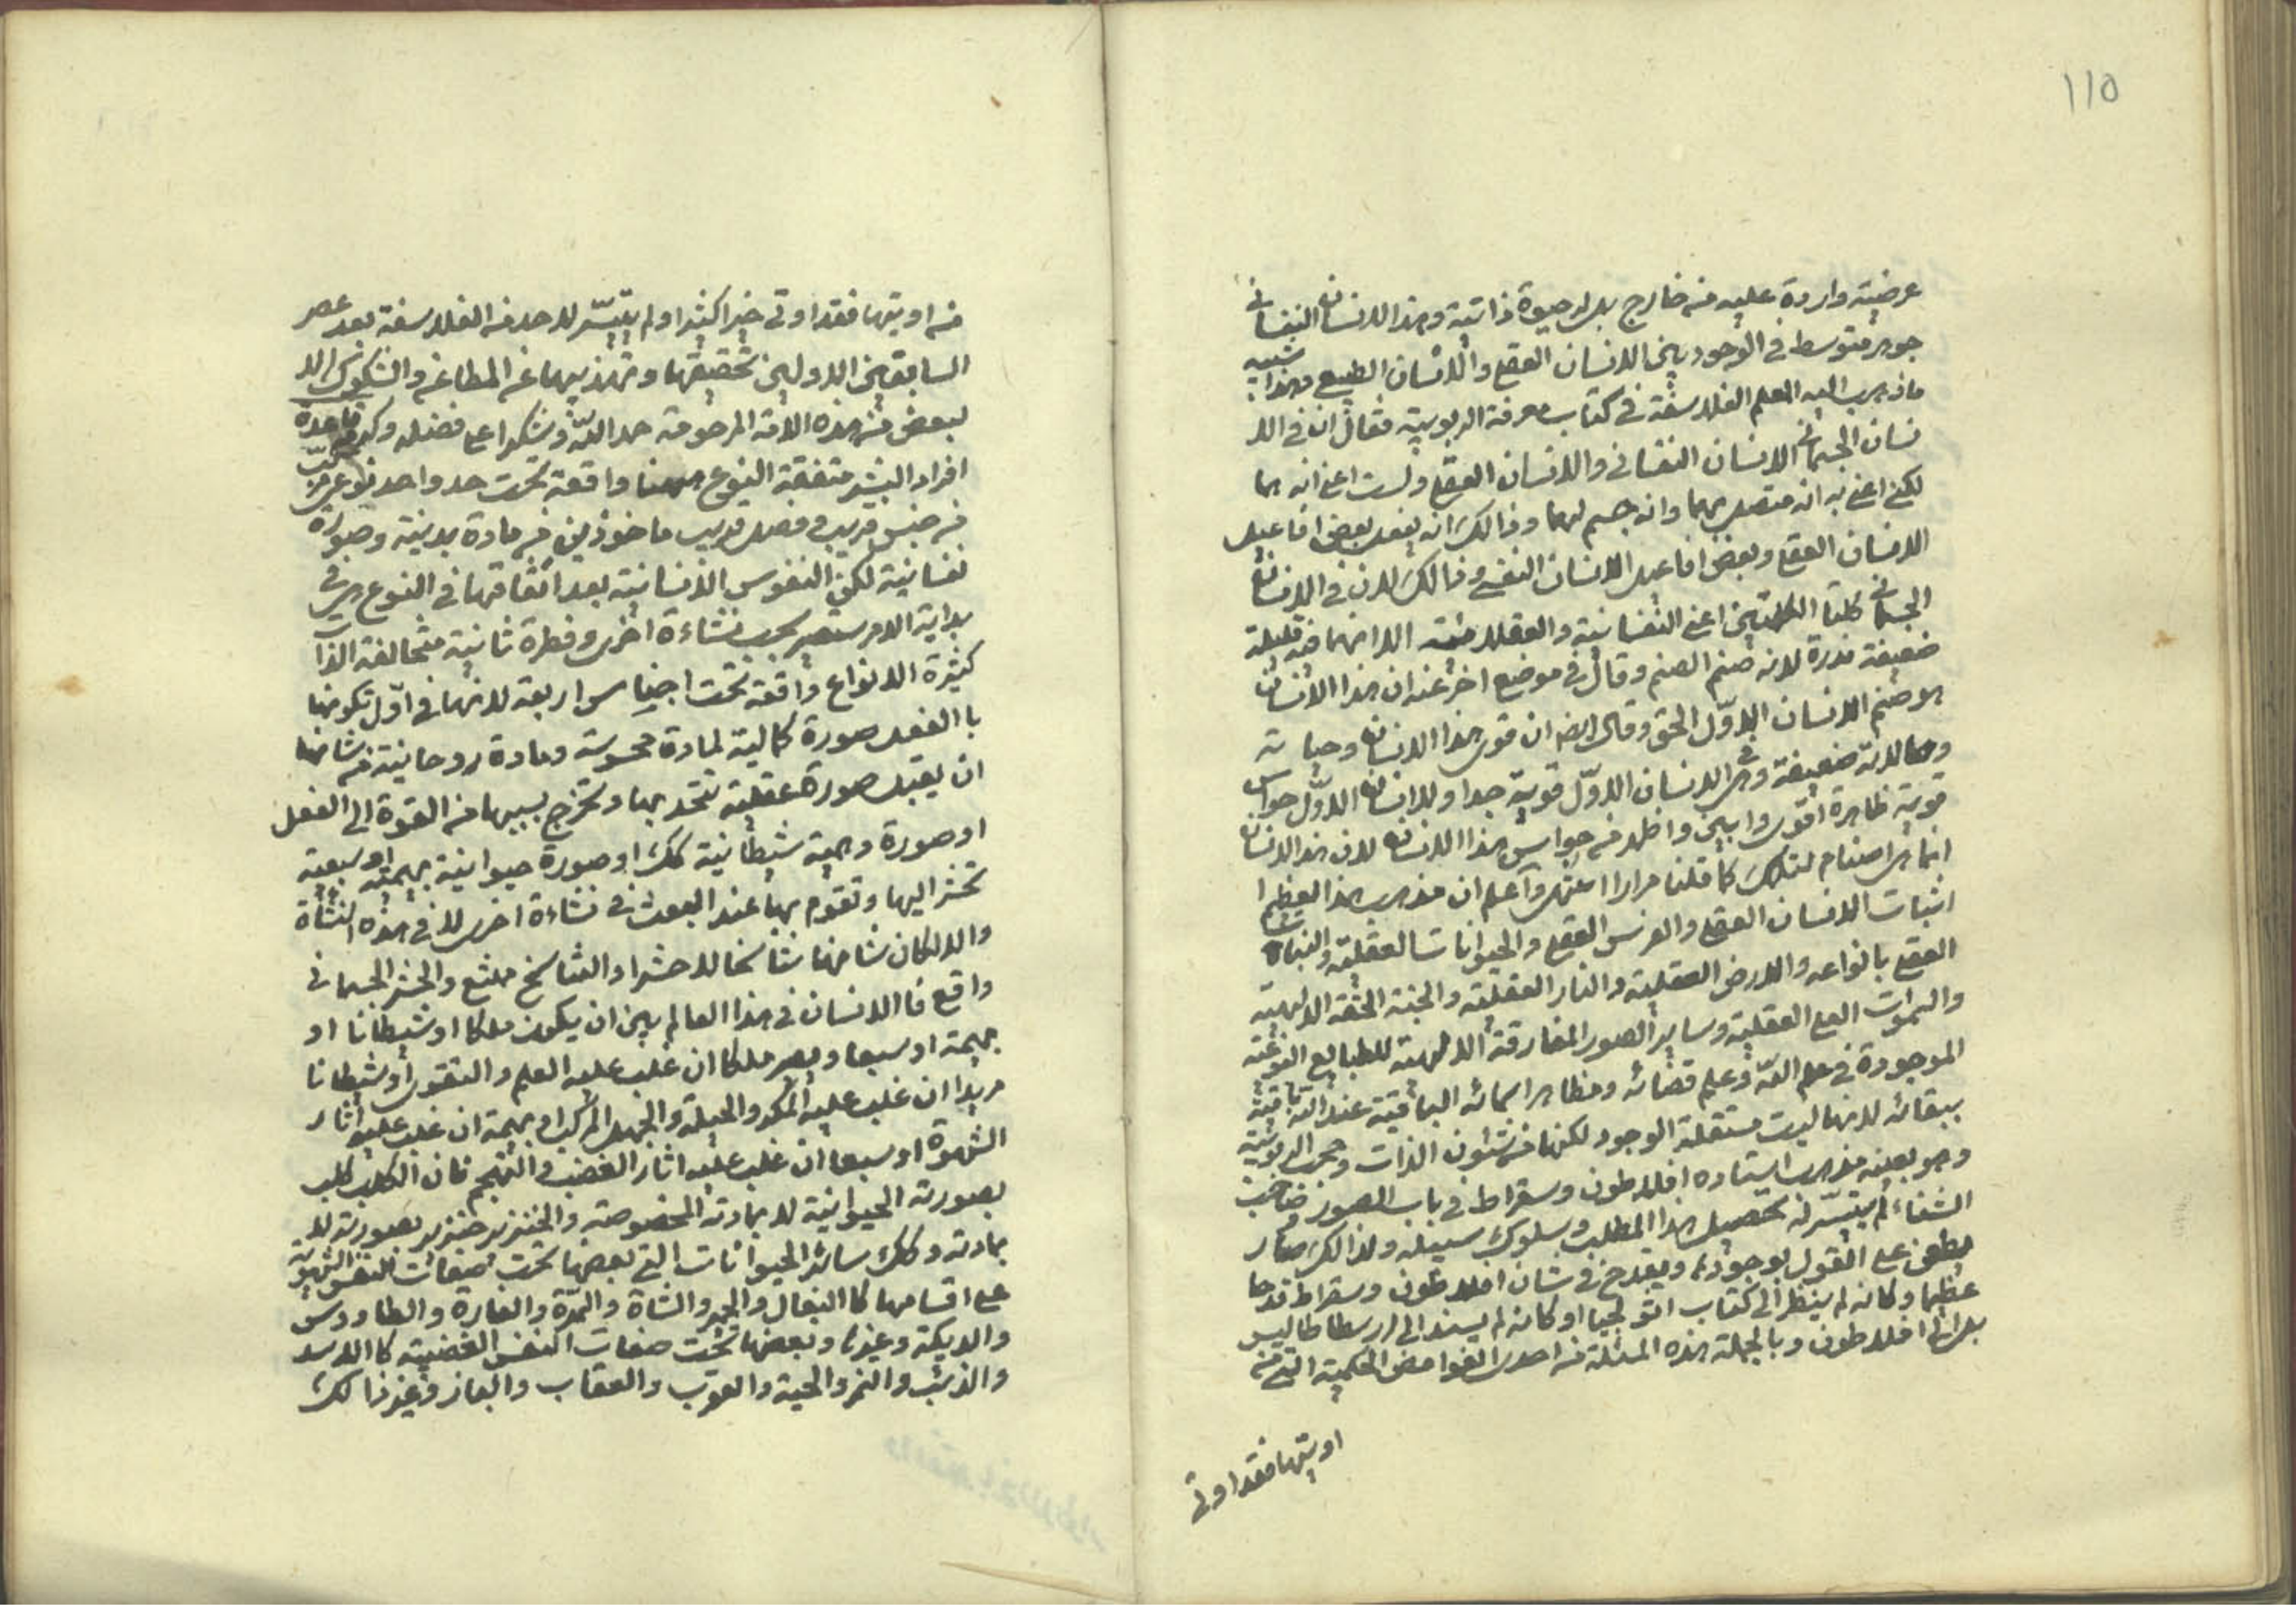 ١١٥
عرضية واردة عليه من خارج بل له حيوة ذاتية وهذا الانسان النفسانى
جوهر متوسط فى الوجود بين الانسان العقلى والانسان الطبيعى وهذا شبيه
ما ذهب اليه المعلم الفلاسفة فى كتاب معرفة الربوبية فقال ان فى الا
نسان الجسمانى الانسان النفسانى والانسان العقلى ولست اعنى انه هما
لكنى اعنى به انه متصل بهما وانه جسم لهما وذالك انه يفعل بعض افاعيل
الانسان العقلى وبعض افاعيل الانسان النفسى وذالك لان فى الانسان
الجسمانى كلتا الكلمتين اعنى النفسانية والعقلانية الا انهما فيه قليلة
ضعيفة نذرة لانه صنم الصنم وقال فى موضع اخر عنه ان هذا الانسان
هو صنم الانسان الاوّل الحق وقال ايضا ان قوى هذا الانسان وحياته
وحالاته ضعيفة وهى فى الانسان الاوّل قوية جدا وللانسان الاوّل حواس
قوية ظاهرة اقوى وابين واظهر من حواس هذا الانسان لان هذا الانسان
انما هى اصنام لتلك كما قلنا مرارا انتهى واعلم ان مذهب هذا العظيم ا
اثبات الانسان العقلى والفرس العقلى والحيوانات العقلية والنبات
العقلى بانواعه والارض العقلية والنار العقلية والجنة الحقة الالهية
والسموات العلى العقلية وساير الصور المفارقة الالهية للطبايع النوعية
الموجودة فى علم اللّه وعلم قضائه ومظاهر اسمائه الباقية عند اللّه باقية
ببقائه لانها ليست مستقلة الوجود لكنها من شئون الذات وحجب الربوبية
وهو بعينه مذهب استاده افلاطون وسقراط فى باب الصور صاحب
الشفاء لم يتيسّر له تحصيل هذا المطلب وسلوك سبيله ولذالك صار
يطعن على القول بوجودها ويقدح فى شان افلاطون وسقراط قدحا
عظيما وكانه لم ينظر الى كتاب اثولوجيا او كانه لم يسند الى ارسطاطاليس
بل الى افلاطون وبالجملة هذه المسئلة من احدى الغوامض الحكمية التى من
اويتها فقد اوتى
من اويتها فقد اوتى خيرا كثيرا ولم يتيسّر لاحد من الفلاسفة بعد عصر
السابقين الاولين تحقيقها وتهذيبها عن المطاعن والشكوك الا
لبعض من هذه الامة المرحومة حمدا للّه وشكرا على فضله وكرمه قاعدة
افراد البشر متفقة النوع ههنا واقعة تحت حد واحد نوعى مركّب
من جنس قريب وفصل قريب ماخوذين من مادة بدنية وصورة
نفسانية لكن النفوس الانسانية بعد اتفاقها فى النوع هى فى
بداية الامر ستصير بحسب نشاءة اخرى وفطرة ثانية متخالفة الذات
كثيرة الانواع واقعة تحت اجناس اربعة لانها فى اوّل تكونها
با الفعل صورة كمالية لمادة محسوسة ومادة روحانية من شانها
ان يقبل صورة عقلية تتحد بها وتخرج بسببها من القوة الى الفعل
او صورة وهمية شيطانية كك او صورة حيوانية بهيمية او سبعية
تحشر اليها وتقوم بها عند البعث فى نشاءة اخرى لا فى هذه النشأة
والا لكان تناسخا لا حشرا والتناسخ ممتنع والحشر الجسمانى
واقع فا الانسان فى هذا العالم بين ان يكون ملكا او شيطانا او
بهيمة او سبعا ويصير ملكا ان غلب عليه العلم والتقوى او شيطانا
مريدا ان غلب عليه المكر والحيلة والجهل المركب او بهيمة ان غلب عليه اثار
الشهوة او سبعا ان غلب عليه اثار الغضب والتهجم فان الكلب كلب
بصورته الحيوانية لا بمادته المخصوصة والخنزير خنزير بصورته لا
بمادته وكك سائر الحيوانات التى بعضها تحت صفات النفس الشهوية
على اقسامها كا البغال والحمير والشاة والهرّة والفارة والطاووس
والديكة وغيرها وبعضها تحت صفات النفس الغضبية كا الاسد
والذئب والنمر والحية والعقرب والعقاب والباز وغير ذالك